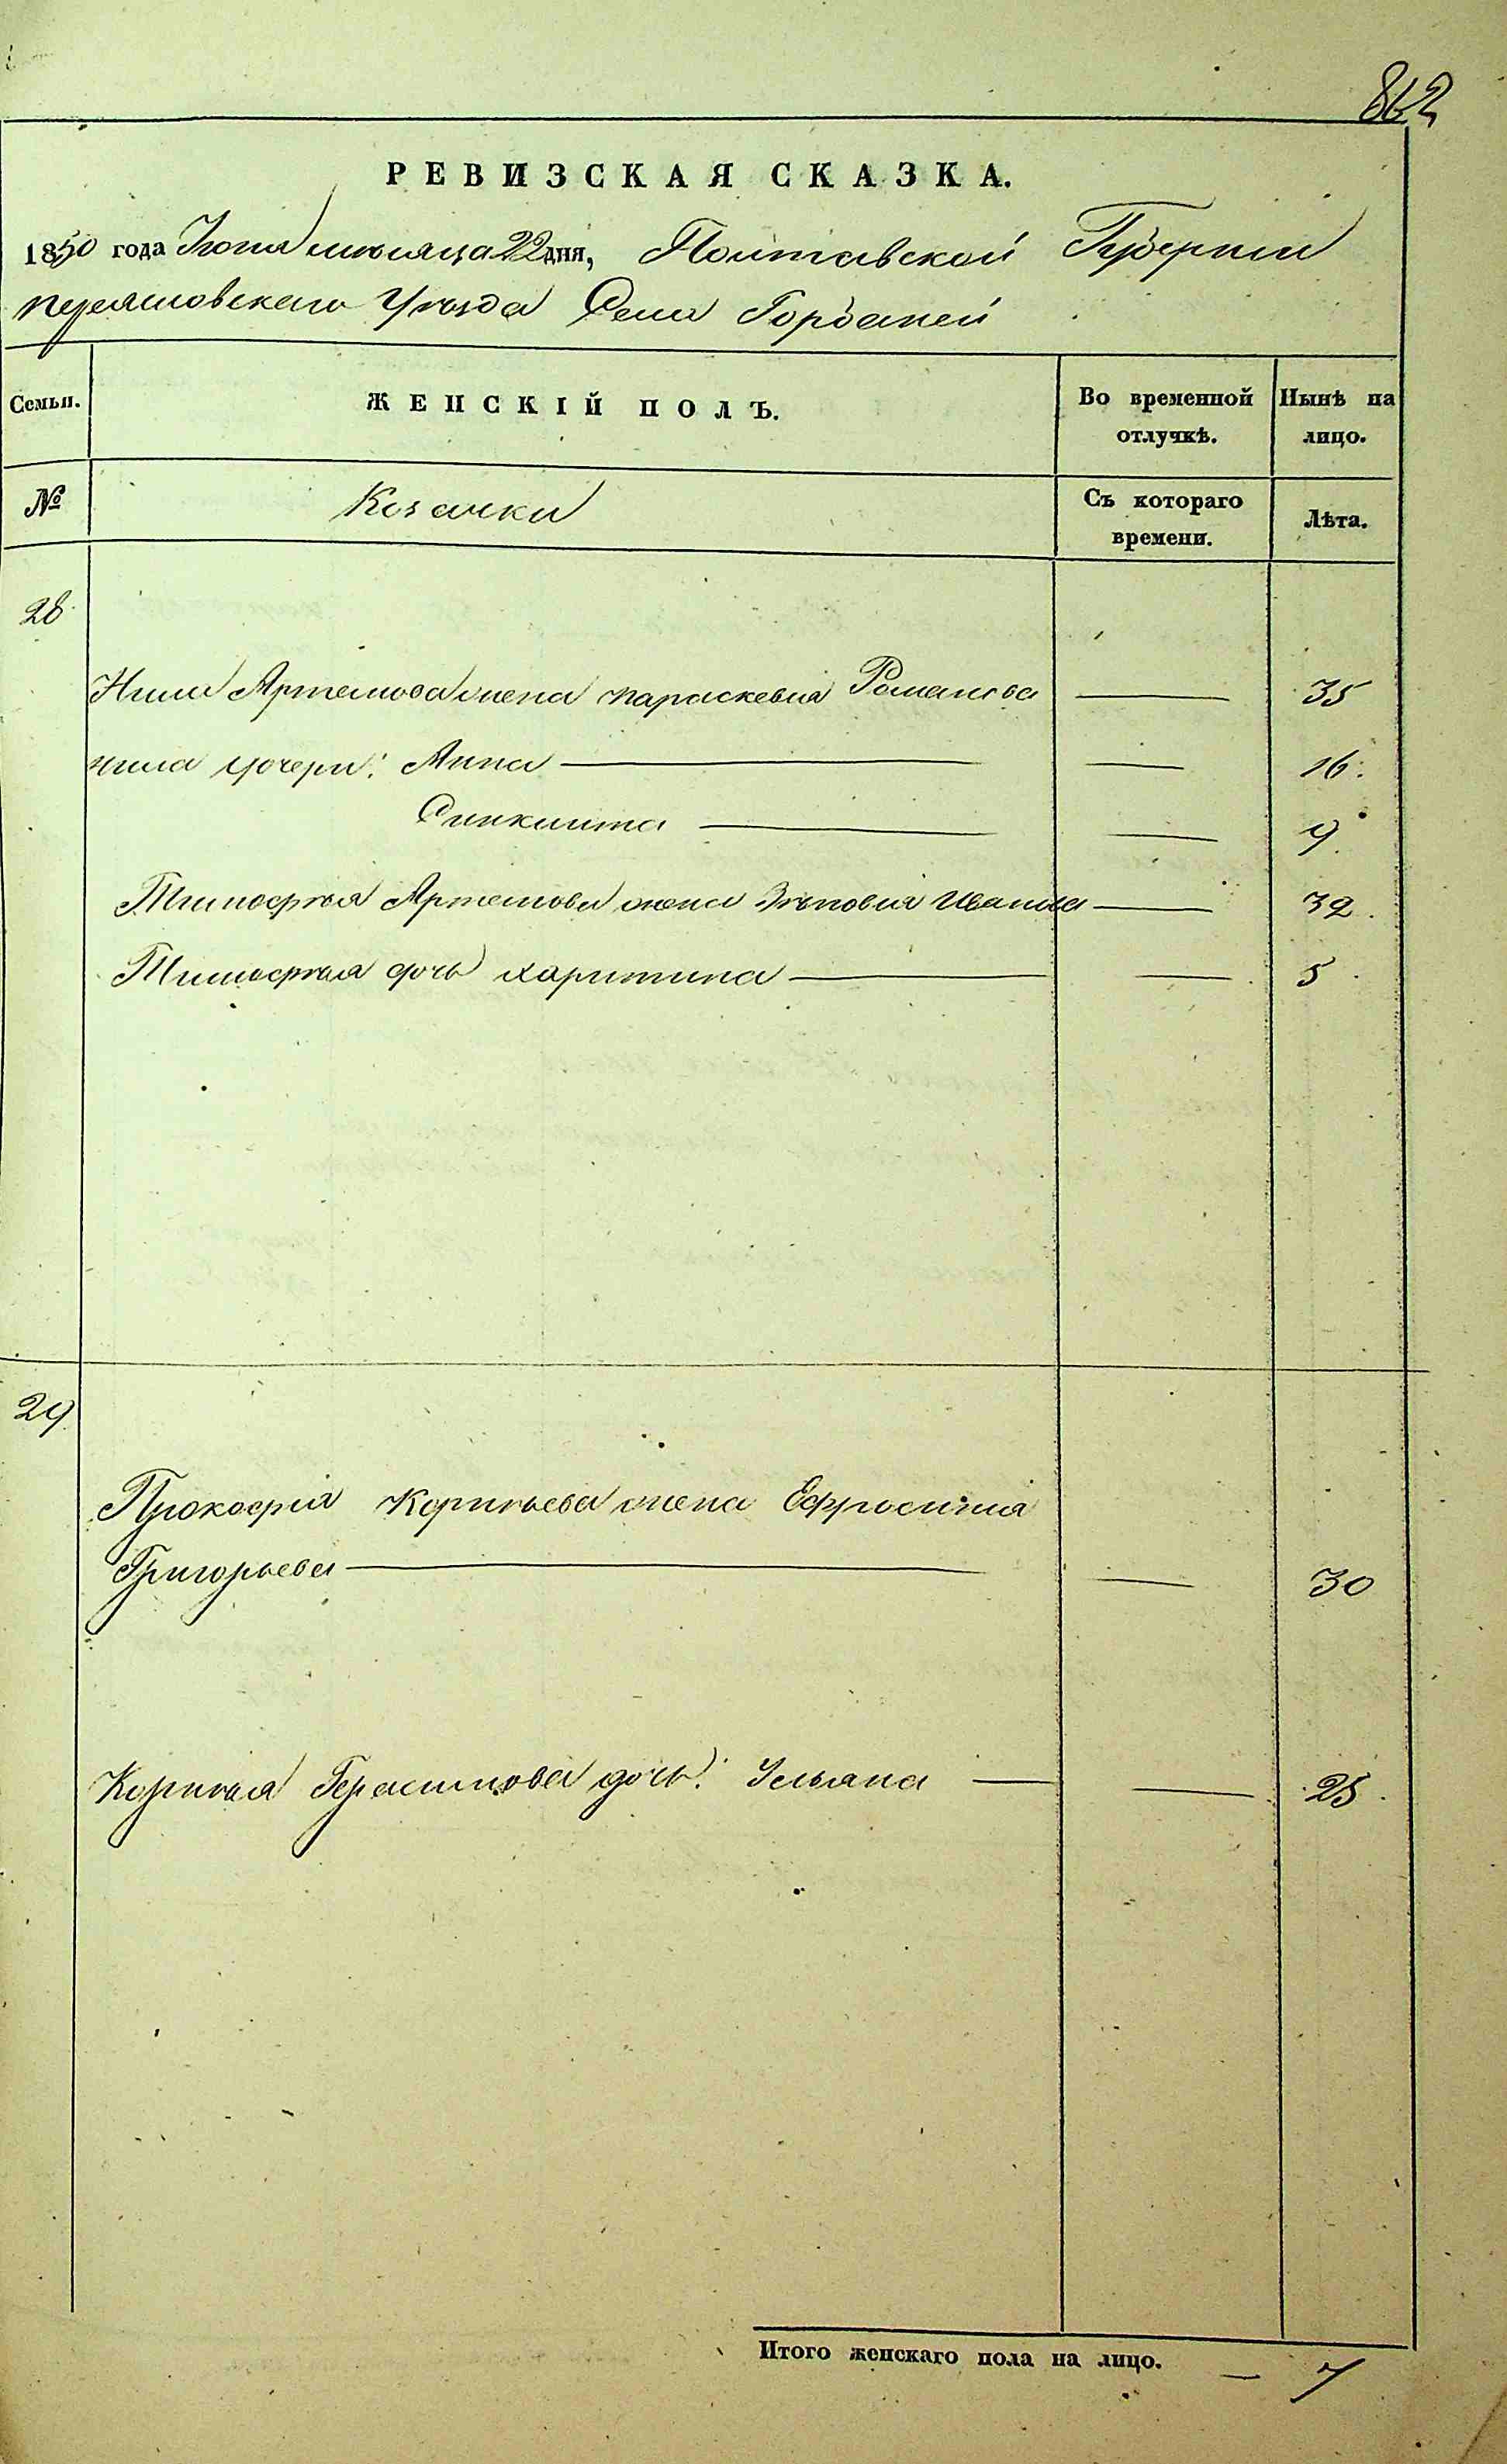 862
РЕВИЗСКАЯ СКАЗКА.
1850 года Июня месяца 22 дня, Полтавской Губернии
Переясловского Уезда Села Горбаней
Семьи. ЖЕНСКІЙ ПОЛЪ. Во временной отлучкѣ. Нынѣ на лицо.
№ Козачки Съ котораго времени. Лѣта.
28
Нила Артемова жена Параскевия Романова — 35
Нила дочери: Анна — — 16.
Синклита — — 9.
Тимофея Артемова жена Зѣновия Иванова — 32.
Тимофея дочь Харитина — — 5.
29
Прокофия Корнѣева жена Ефросиния
Григорьева — — 30
Корнѣя Герасимова дочь: Ульяна — — 25.
Итого женскаго пола на лицо. — 7